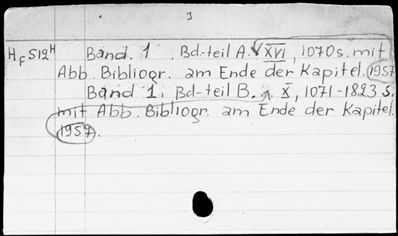 3
HF 512H Band. 1. Bd-teil A. XVI, 1070s. mit
Abb. Bibliogr. am Ende der Kapitel. 1957
Band 1. Bd-teil B. X, 1071-1823 S.
mit Abb. Bibliogr. am Ende der Kapitel.
1957.